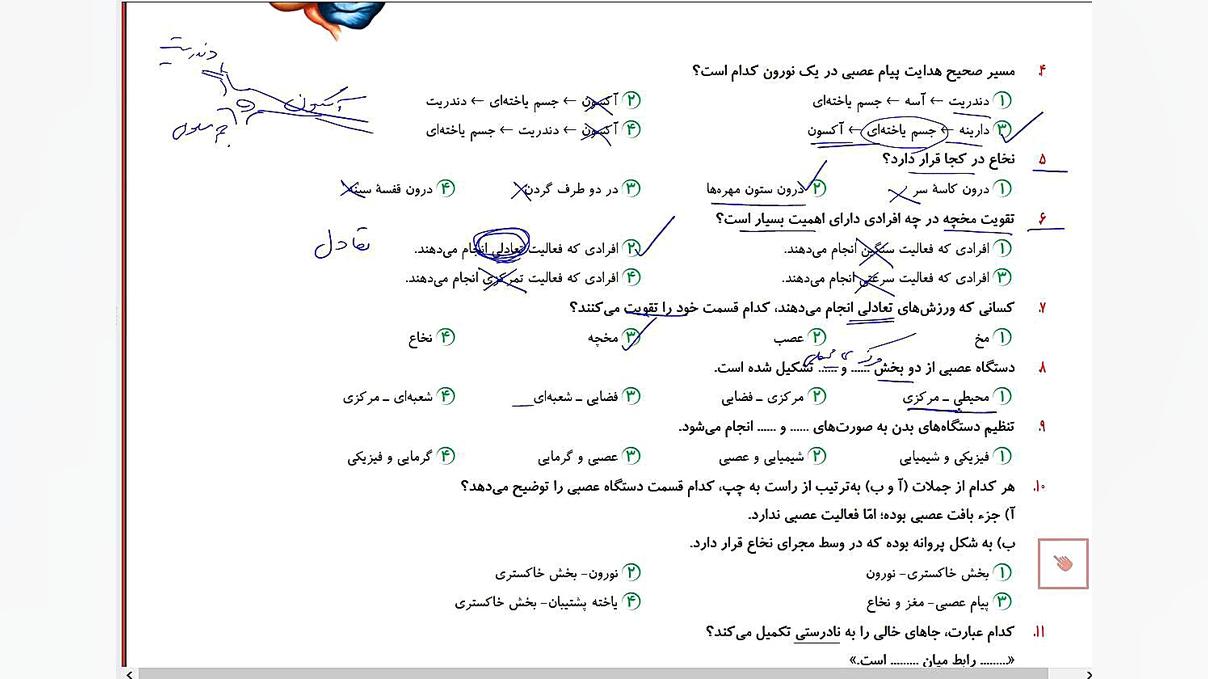 ۴. مسیر صحیح هدایت پیام عصبی در یک نورون کدام است؟
۱) دندریت ← آسه ← جسم یاخته‌ای ۲) آکسون ← جسم یاخته‌ای ← دندریت
۳) دارینه ← جسم یاخته‌ای ← آکسون ۴) آکسون ← دندریت ← جسم یاخته‌ای
دندریت
آکسون
جسم سلولی
۵. نخاع در کجا قرار دارد؟
۱) درون کاسهٔ سر ۲) درون ستون مهره‌ها ۳) در دو طرف گردن ۴) درون قفسهٔ سینه
۶. تقویت مخچه در چه افرادی دارای اهمیت بسیار است؟
۱) افرادی که فعالیت سنگین انجام می‌دهند. ۲) افرادی که فعالیت تعادلی انجام می‌دهند.
تعادل
۳) افرادی که فعالیت سرعتی انجام می‌دهند. ۴) افرادی که فعالیت تمرکزی انجام می‌دهند.
۷. کسانی که ورزش‌های تعادلی انجام می‌دهند، کدام قسمت خود را تقویت می‌کنند؟
۱) مخ ۲) عصب ۳) مخچه ۴) نخاع
مرکزی محیطی
۸. دستگاه عصبی از دو بخش ...... و ...... تشکیل شده است.
۱) محیطی ـ مرکزی ۲) مرکزی ـ فضایی ۳) فضایی ـ شعبه‌ای ۴) شعبه‌ای ـ مرکزی
۹. تنظیم دستگاه‌های بدن به صورت‌های ...... و ...... انجام می‌شود.
۱) فیزیکی و شیمیایی ۲) شیمیایی و عصبی ۳) عصبی و گرمایی ۴) گرمایی و فیزیکی
۱۰. هر کدام از جملات (آ و ب) به‌ترتیب از راست به چپ، کدام قسمت دستگاه عصبی را توضیح می‌دهد؟
آ) جزء بافت عصبی بوده؛ امّا فعالیت عصبی ندارد.
ب) به شکل پروانه بوده که در وسط مجرای نخاع قرار دارد.
۱) بخش خاکستری- نورون ۲) نورون- بخش خاکستری
۳) پیام عصبی- مغز و نخاع ۴) یاخته پشتیبان- بخش خاکستری
۱۱. کدام عبارت، جاهای خالی را به نادرستی تکمیل می‌کند؟
«......... رابط میان ......... است.»